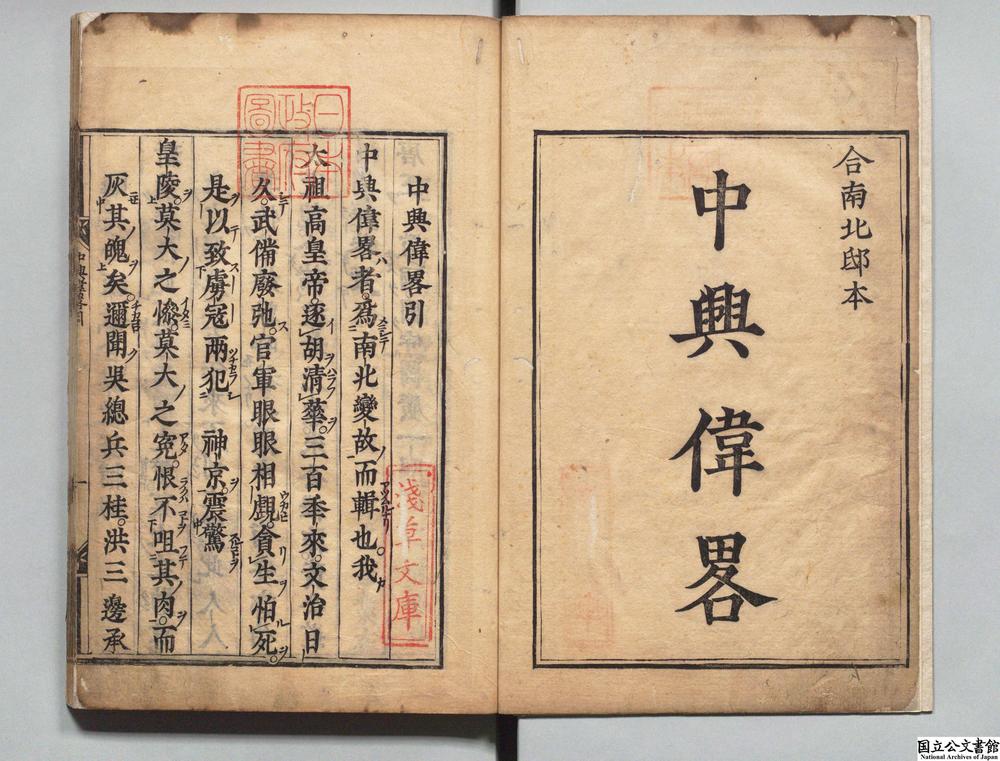 合南北邸本
中興偉畧
中興偉畧引
中興偉畧者。爲南北變故而輯也。我
太祖高皇帝。逐胡清華。三百季來。文治日
久。武備廢弛。官軍眼眼相覷。貪生怕死。
是以致虜冦兩犯 神京。震驚
皇陵。莫大之慘。莫大之寃。恨不咀其肉。而
灰其魄矣。邇聞吳總兵三桂。洪三邊承
日本
政府
圖書
淺草文庫
国立公文書館
National Archives of Japan